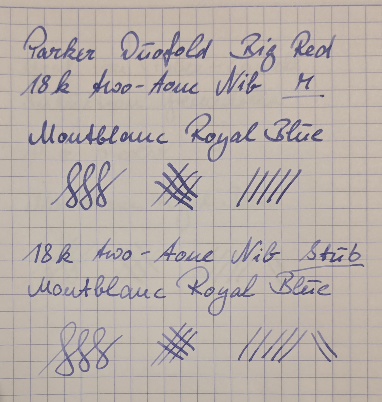 Parker Duofold Big Red
18k two-tone Nib M
Montblanc Royal Blue
18k two-tone Nib Stub
Montblanc Royal Blue